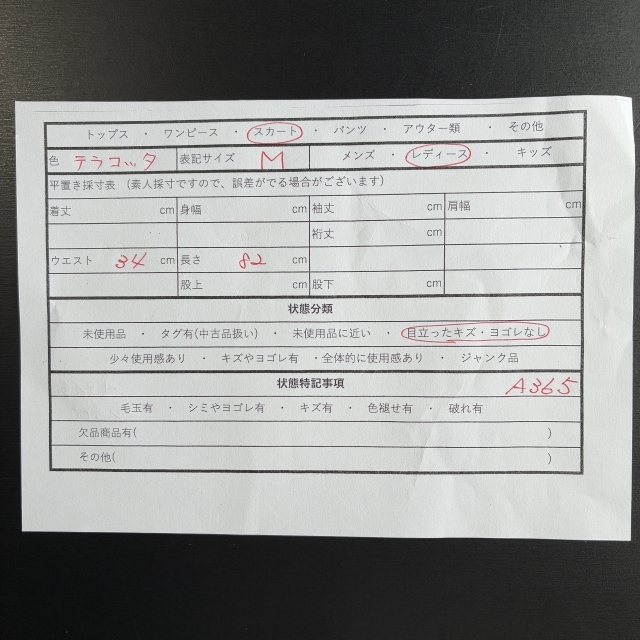 トップス ・ ワンピース ・ スカート ・ パンツ ・ アウター類 ・ その他
色 テラコッタ 表記サイズ M メンズ ・ レディース ・ キッズ
平置き採寸表 (素人採寸ですので、誤差がでる場合がございます)
着丈 cm 身幅 cm 袖丈 cm 肩幅 cm
裄丈 cm
ウエスト 34 cm 長さ 82 cm
股上 cm 股下 cm
状態分類
未使用品 ・ タグ有(中古品扱い) ・ 未使用品に近い ・ 目立ったキズ・ヨゴレなし
少々使用感あり ・ キズやヨゴレ有 ・全体的に使用感あり ・ ジャンク品
状態特記事項 A365
毛玉有 ・ シミやヨゴレ有 ・ キズ有 ・ 色褪せ有 ・ 破れ有
欠品商品有( )
その他( )